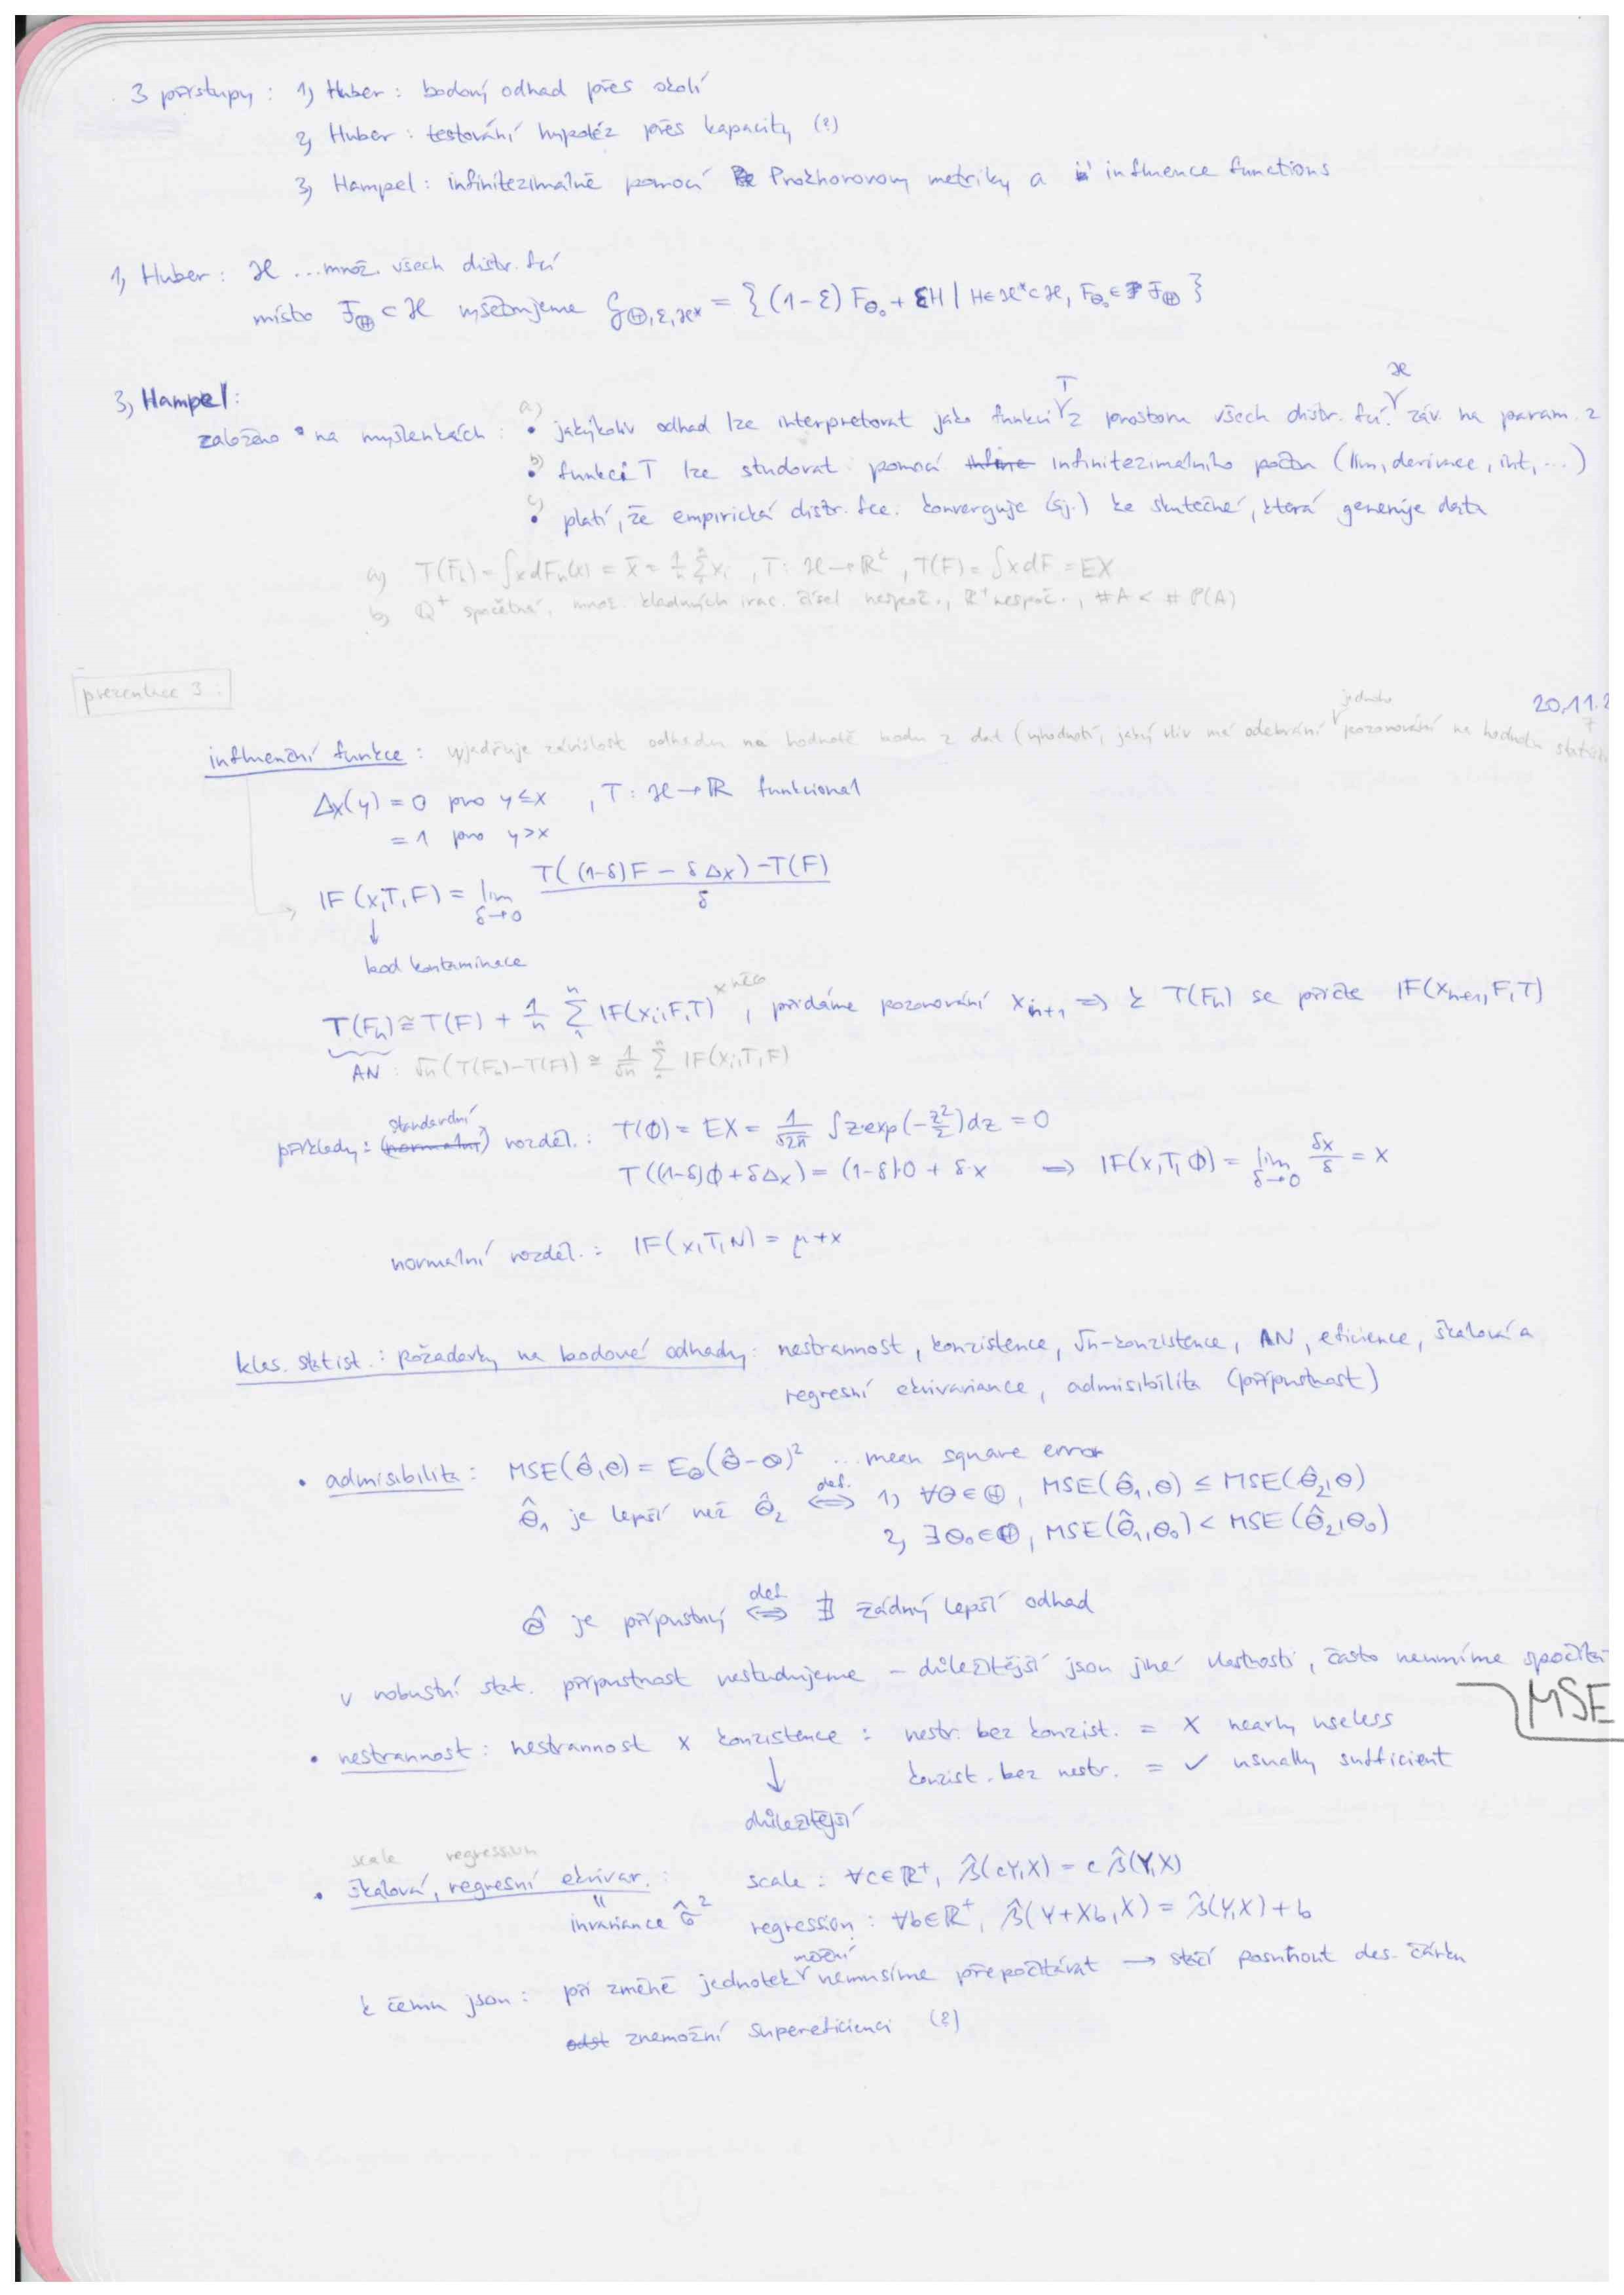 3 přístupy : 1) Huber : bodový odhad přes okolí
2) Huber : testování hypotéz přes kapacity (?)
3) Hampel : infinitezimálně pomocí Prokhorovovy metriky a influence functions
1) Huber : ℋ ... množ. všech distr. fcí
místo ℱ_Θ ⊂ ℋ vyšetřujeme 𝒢_Θ,ε,ℋ* = { (1-ε) F_θ₀ + εH | H∈ℋ*⊂ℋ, F_θ₀ ∈ ℱ_Θ }
3) Hampel :
založeno na myšlenkách : a) • jakýkoliv odhad lze interpretovat jako funkci T z prostoru všech distr. fcí ℋ záv. na param. z
b) • funkci T lze studovat pomocí infinitezimálního počtu (lim, derivace, int, ...)
c) • platí, že empirická distr. fce. konverguje (sj.) ke skutečné, která generuje data
a) T(Fₙ) = ∫x dFₙ(x) = x̄ = 1/n Σxᵢ , T : ℋ → ℝᵏ , T(F) = ∫x dF = EX
b) ℚ⁺ spočetná, množ. kladných irac. čísel nespoč., ℝ⁺ nespoč., #A < #𝒫(A)
prezentace 3 :
20.11.2
influenční funkce : vyjadřuje závislost odhadu na hodnotě bodu z dat (vyhodnotí, jaký vliv má odebrání jednoho pozorování na hodnotu
Δx(y) = 0 pro y≤x , T : ℋ → ℝ funkcionál
= 1 pro y>x
IF (x,T,F) = lim_{δ→0} (T( (1-δ)F - δΔx) - T(F)) / δ
↓
bod kontaminace
T(Fₙ) ≅ T(F) + 1/n Σ₁ⁿ IF(xᵢ,F,T) × něco , přidáme pozorování xₙ₊₁ ⇒ k T(Fₙ) se přičte IF(xₙ₊₁,F,T)
AN : √n (T(Fₙ)-T(F)) ≅ 1/√n Σ IF(xᵢ,T,F)
příklady : (normální) standardní rozděl. : T(Φ) = EX = 1/√2π ∫z·exp(-z²/2)dz = 0
T((1-δ)Φ+δΔx) = (1-δ)·0 + δ·x ⇒ IF(x,T,Φ) = lim_{δ→0} δx/δ = x
normální rozděl. : IF(x,T,N) = μ+x
klas. statist. : požadavky na bodové odhady : nestrannost, konzistence, √n-konzistence, AN, eficience, škálová a
regresní ekvivariance, admisibilita (přípustnost)
• admisibilita : MSE(θ̂,θ) = E_θ(θ̂-θ)² ... mean square error
θ̂₁ je lepší než θ̂₂ ⇔ def. 1) ∀θ∈Θ, MSE(θ̂₁,θ) ≤ MSE(θ̂₂,θ)
2) ∃θ₀∈Θ, MSE(θ̂₁,θ₀) < MSE(θ̂₂,θ₀)
θ̂ je přípustný ⇔ def ∄ žádný lepší odhad
v robustní stat. přípustnost nestudujeme - důležitější jsou jiné vlastnosti, často neumíme
MSE
• nestrannost : nestrannost × konzistence : nestr. bez konzist. = X nearly useless
↓ konzist. bez nestr. = ✓ usually sufficient
důležitější
scale regression
• škálová, regresní ekvivar. : scale : ∀c∈ℝ⁺, β̂(cY,X) = c β̂(Y,X)
" invariance σ̂² regression : ∀b∈ℝ⁺, β̂(Y+Xb,X) = β̂(Y,X)+b
k čemu jsou : při změně jednotek nemusíme přepočítávat → stačí posunout des. čárku
znemožní supereficienci (?)